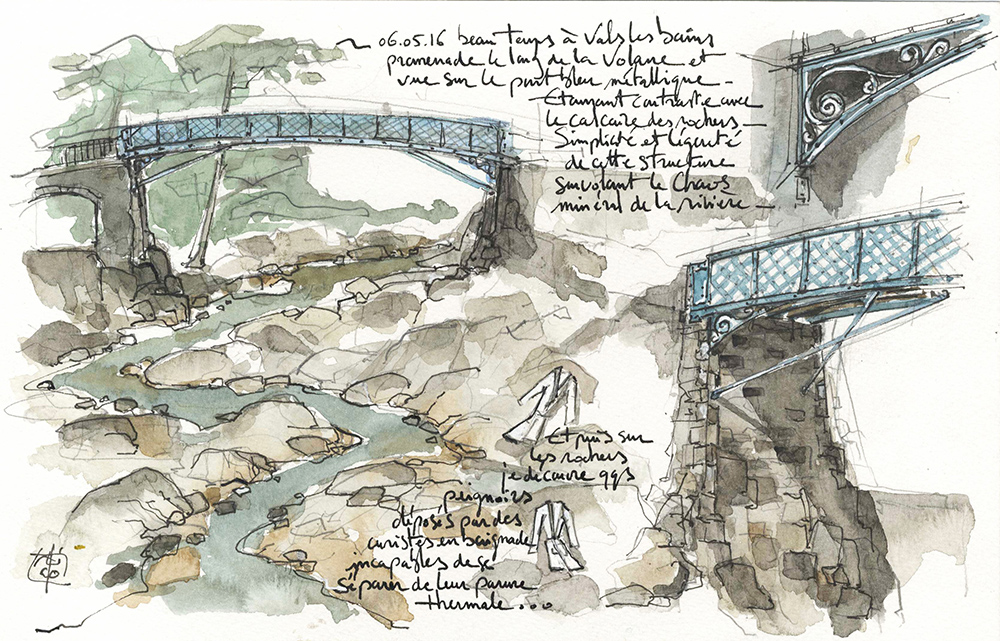 06.05.16 beau temps à Vals les bains
promenade le long de la Volane et
vue sur le pont bleu métallique -
Etonnant contraste avec
le calcaire des rochers -
Simplicité et légereté
de cette structure
survolant le Chaos
minéral de la rivière -
Et puis sur
les rochers
je découvre qqs
peignoirs
déposés par des
curistes en baignade
incapables de se
séparer de leur parure
thermale...